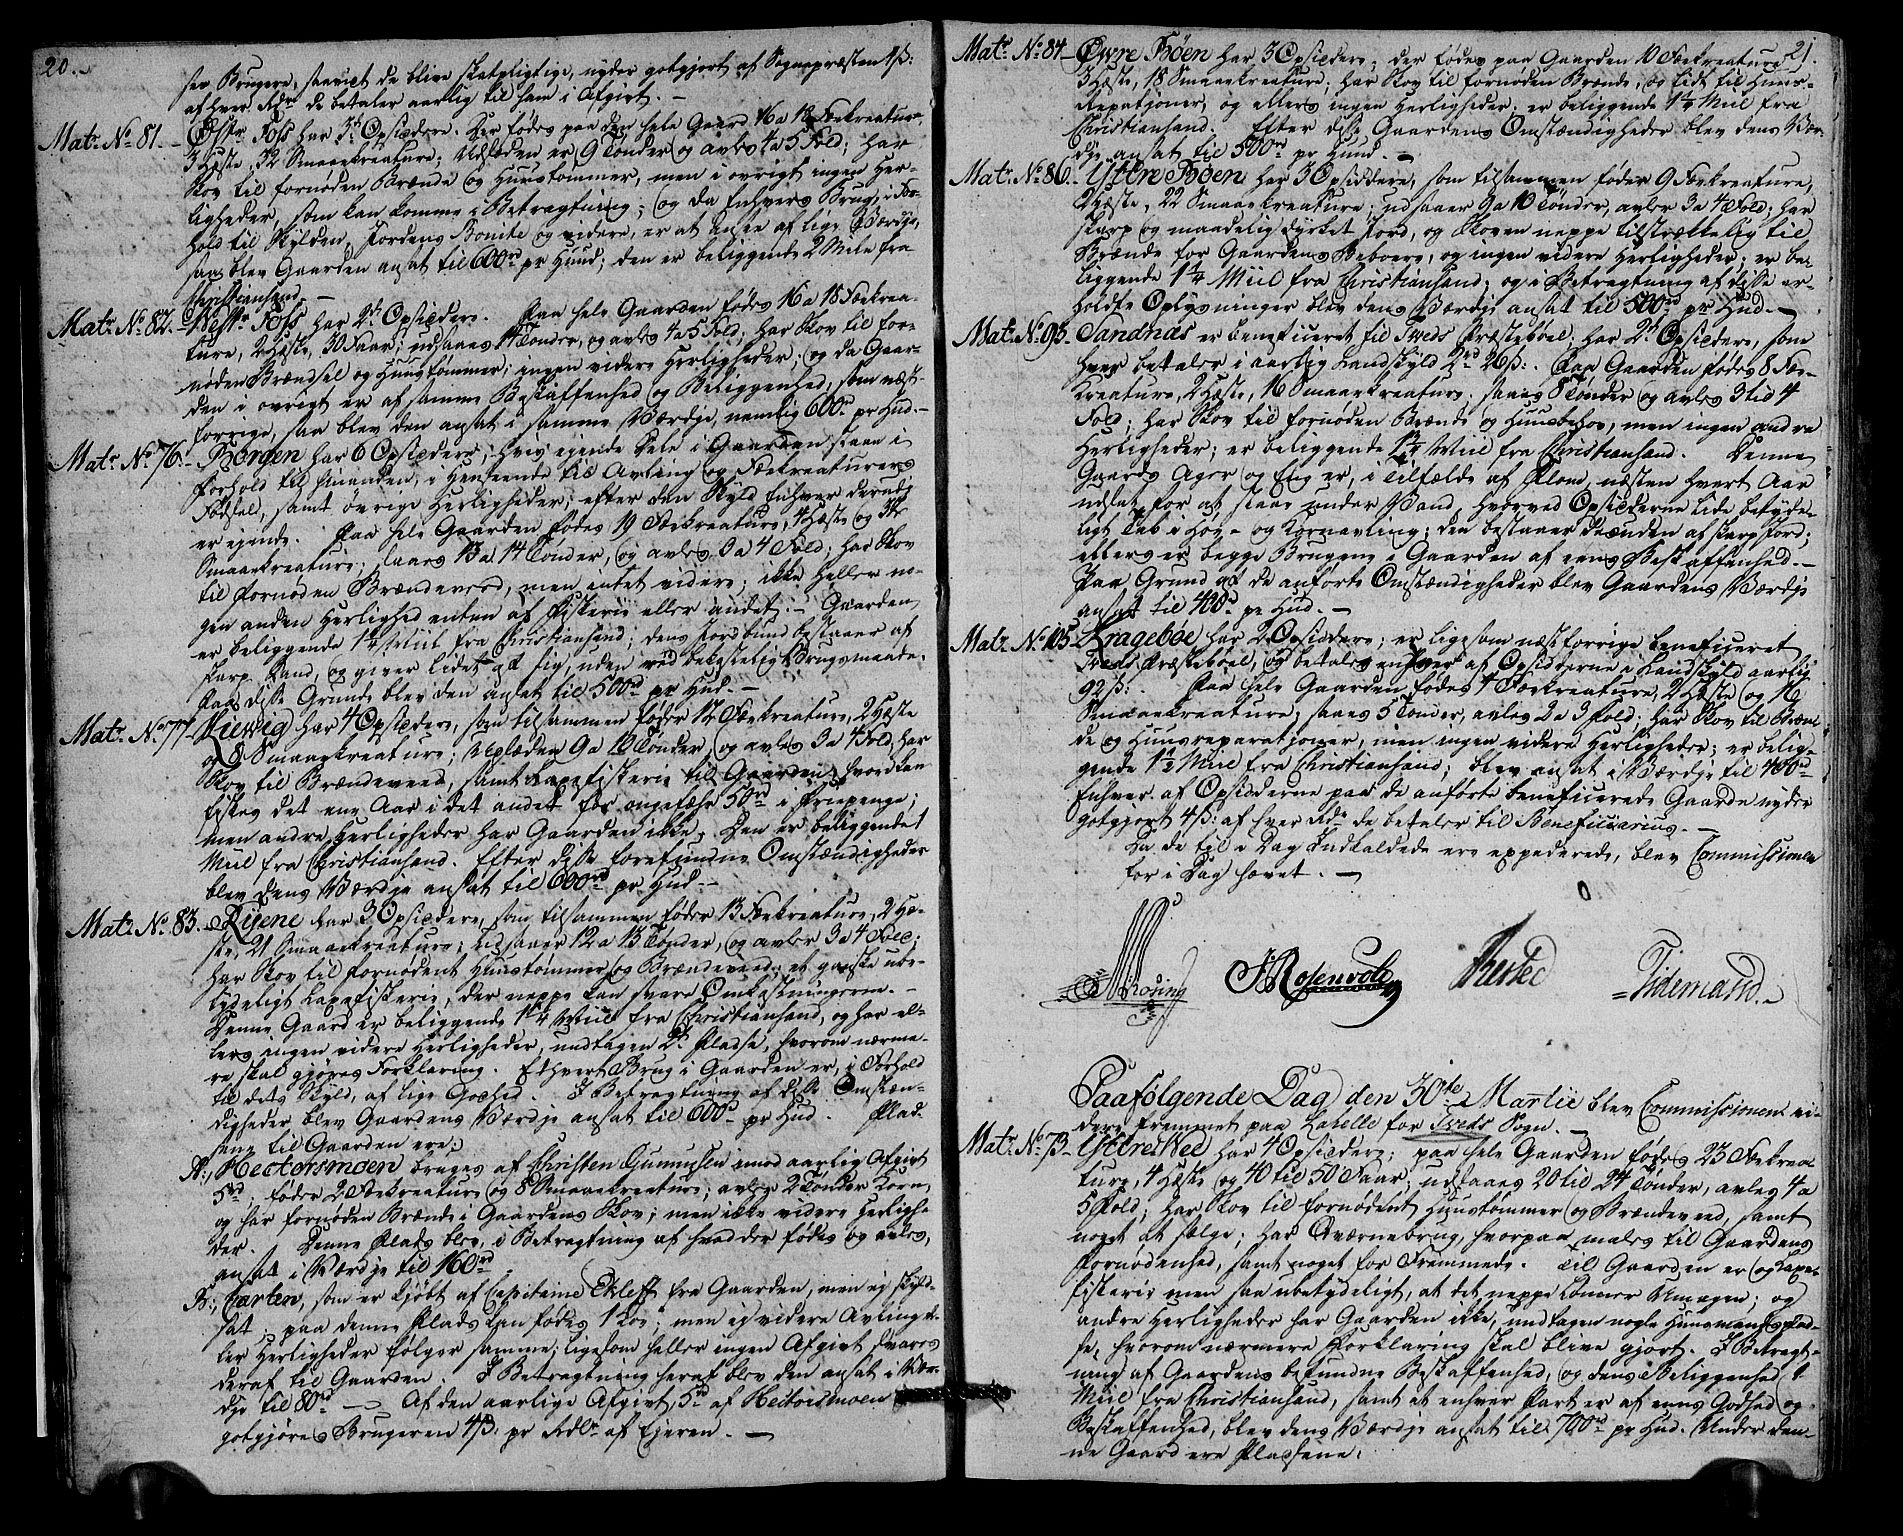 20.
ser Brugere, saavidt de blive skatpligtige, nyder godtgjort af Sognepræsten 4ß:
af hver Rdr de betaler aarlig til ham i Afgivt. –
Matr. No. 81. – Østr. Foss har 3de Opsiddere. Der fødes paa den hele Gaard 16 a 18 Fækreature
3 Heste, 32 Smaaekreature; Udsæden er 9 Tønder og avles 4 a 5 Fold; har
Skov til fornøden Brænde og Huustømmer, men i øvrigt ingen Her-
ligheder, som kan komme i Betragtning; og da Enhvers Brug, i For-
hold til Skylden, Jordens Bonite og videre, er at ansee af lige Værdje,
saa blev Gaarden ansat til 600rd pr Huud; den er beliggende 2 Mile fra
Christiansand. –
Matr. No. 82. – Westr. Foss har 2de Opsiddere. Paa hele Gaarden fødes 16 a 18 Fækrea-
ture, 2 Heste, 30 Faar; udsaaes Tønder, og avles 4 a 5 Fold; har Skov til for-
nøden Brændsel og Huustømmer; ingen videre Herligheder; og da Gaar-
den i øvrigt er af samme Beskaffenhed og Beliggenhed, som næst-
forrige, saa blev den ansat i samme Værdje, nemlig 600rd pr Hud. –
Matr. No. 76. – Bergen har 6 Opsiddere, hvis ejende Dele i Gaarden staae i
Forhold til hinanden, i Henseende til Avling og Fækreaturers
Fødsel, samt øvrige Herligheder, efter den Skyld Enhver deraf
er ejende. Paa hele Gaarden fødes 19 Fækreature, 4 Heste og
Smaaekreature; saaes 13 a 14 Tønder, og avles 3 a 4 Fold; har Skov
til fornøden Brændeveed, men intet videre; ikke heller no-
gen anden Herlighed enten af Fiskerie eller andet. – Gaarden
er beliggende 1¼ Miil fra Christiansand; dens Jordbund bestaaer af
skarp Sand, og giver lidet af sig, uden ved bekostelig Brugsmaade.
Paa disse Grunde blev den ansat til 500rd pr Hud. –
Matr. No. 77. – Kiewig har 4 Opsiddere, som tilsammen føder 12 Fækreature, 2 Heste
og 8 Smaaekreature; Udsæden 9 a 10 Tønder, og avles 3 a 4 Fold, har
Skov til Brændeveed, samt Laxefiskerie til Gaarden, hvordan
fiskes det ene Aar i det andet for ongefæhr 50rd i Priepenge;
men andre Herligheder har Gaarden ikke. Den er beliggende 1
Miil fra Christiansand. Efter disse forefundne Omstændigheder
blev dens Værdje ansat til 600rd pr Hud. –
Matr. No. 83. – Ryene har 3 Opsiddere, som tilsammen føder 13 Fækreature, 2 He-
ste, 21 Smaaekreature; udsaaer 12 a 13 Tønder, og avler 3 a 4 Fold;
har Skov til fornødent Huustømmer og Brændeveed; et ganske ube-
tydeligt Laxefiskerie, der neppe kan svare Omkostningerne. –
Denne Gaard er beliggende 1¼ Miil fra Christiansand, og har el-
lers ingen videre Herligheder, undtagen 2de Pladse, hvorom nærme-
re skal gjøres Forklaring. Ethvert Brug i Gaarden er, i Forhold
til dets Skyld, af lige Godhed. I Betragtning af disse Omstæn-
digheder blev Gaardens Værdje ansat til 600rd pr Hud. Plad-
sene til Gaarden ere:
A., Hectorsmoen bruges af Christen Gunnulsen imod aarlig Afgivt
5rd; føder 2 Fækreature og 8 Smaaekreature; avler 2 Tønder Korn,
og har fornøden Brænde i Gaardens Skov; men ikke videre Herlighe-
der. Denne Plads blev, i Betragtning af hvad der fødes og avles,
ansat i Værdje til 160rd
B., Carlen, som er kjøbt af Capitaine Ekleff fra Gaarden, men ej skyld-
sat; paa denne Plads kan fødes 1 Koe; men ej videre Avling el-
ler Herligheder følger samme; ligesom heller ingen Afgivt svares
deraf til Gaarden. I Betragtning heraf blev den ansat i Vær-
dje til 80rd – Af den aarlige Afgivt 5rd af Hectorsmoen
godtgjøres Brugeren 4ß. pr Rdr. af Ejeren. –
21.
Matr. No. 84 – Øvre Bøen har 3 Opsiddere; der fødes paa Gaarden 10 Fækreature
3 Heste, 18 Smaaekreature; har Skov til fornøden Brænde, og lidt til Huus-
Repationer, og ellers ingen Herligheder; er beliggende 1¼ Miil fra
Christiansand. Efter disse Gaardens Omstændigheder blev dens Vær-
dje ansat til 500rd pr Huud. –
Matr. No. 86. – Yttre Bøen har 3 Opsiddere, som tilsammen føder 9 Fækreature,
Heste, 22 Smaaekreature; udsaaer 9 a 10 Tønder, avler 3 a 4 Fold; har
skarp og maadelig dyrket Jord, og Skoven neppe tilstrækkelig til
Brænde for Gaardens Beboere, og ingen videre Herligheder; er be-
liggende 1¼ Miil fra Christiansand; og i Betragtning af disse er-
holdte Oplysninger blev dens Værdje ansat til 500rd pr Hud. –
Matr. No. 95. – Sandnæs er beneficeret til Tveds Præstebøel; har 2de Opsiddere, som
hver betaler i aarlig Landskyld 2rd 26ß:. Paa Gaarden fødes 8 Fæ-
kreature, 2 Heste, 16 Smaaekreature, saaes 8 Tønder og avles 3 til 4
Fold; har Skov til fornøden Brænde og Huusbehov, men ingen andre
Herligheder; er beliggende 1¼ Miil fra Christiansand. Denne
Gaards Ager og Eng er, i Tilfælde af Flom, næsten hvert Aar
udsat for at staae under Vand, hvorved Opsidderne lide betyde-
ligt Tab i Høe- og Kornavling; den bestaaer i Grunden af skarp Jord;
ellers er begge Brugene i Gaarden af eens Beskaffenhed. –
Paa Grund af de anførte Omstændigheder blev Gaardens Værdje
ansat til 400rd pr Hud. –
Matr. No. 105. – Kragebøe har 2 Opsiddere; er ligesom næstforrige beneficeret
Tveds Præstebøel, og betales enhver af Opsidderne i Landskyld aarlig
92ß:. Paa hele Gaarden fødes 4 Fækreature, 2 Heste og 16
Smaaekreature; saaes 5 Tønder, avles 2 a 3 Fold; har Skov til Bræn-
de og Huusreparationer, men ingen videre Herligheder; er belig-
gende 1½ Miil fra Christiansand; blev ansat i Værdje til 400rd
Enhver af Opsidderne paa de anførte beneficerede Gaarde nyder
godtgjort 4ß: af hver Rdr de betaler til Beneficiarius. –
Da de til i Dag Indkaldede ere expederede, blev Commissionen
for i Dag hævet. –
Mosing J Rosenvold Tidemand.
Paafølgende Dag den 30te Martii blev Commissionen vi-
dere fremmet paa Labelle for Tveds Sogn. –
Matr. No. 73. – Yttre Wee har 4 Opsiddere; paa hele Gaarden fødes 23 Fækrea-
ture, 4 Heste og 40 til 50 Faar; udsaaes 20 til 24 Tønder, avles 4 a
5 Fold; har Skov til fornødent Huustømmer og Brændeveed, samt
noget at sælge; har Qværnebrug, hvorpaa males til Gaardens
Fornødenhed, samt noget for Fremmede. Til Gaarden er og Laxe-
fiskerie men saa ubetydeligt, at det neppe lønner Umagen; og
andre Herligheder har Gaarden ikke, undtagen nogle Huusmandsplad-
se, hvorom nærmere Forklaring skal blive gjort. I Betragt-
ning af Gaardens befundne Beskaffenhed, og dens Beliggenhed 1
Miil fra Christiansand, samt at enhver Part er af eens Godhed og
Beskaffenhed, blev dens Værdje ansat til 700rd pr Hud. Under den-
ne Gaard ere Pladsene: